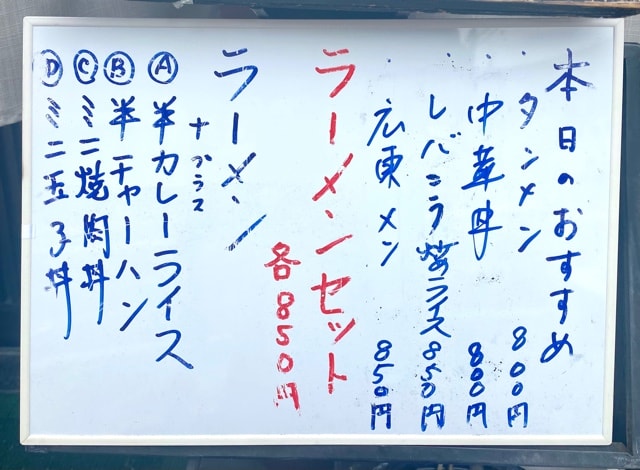 本日のおすすめ
・タンメン 800円
・中華丼 800円
・レバニラ炒めライス 850円
・広東メン 850円
ラーメンセット
各850円
ラーメン
+プラス
Ⓐ半カレーライス
Ⓑ半チャーハン
Ⓒミニ焼肉丼
Ⓓミニ玉子丼